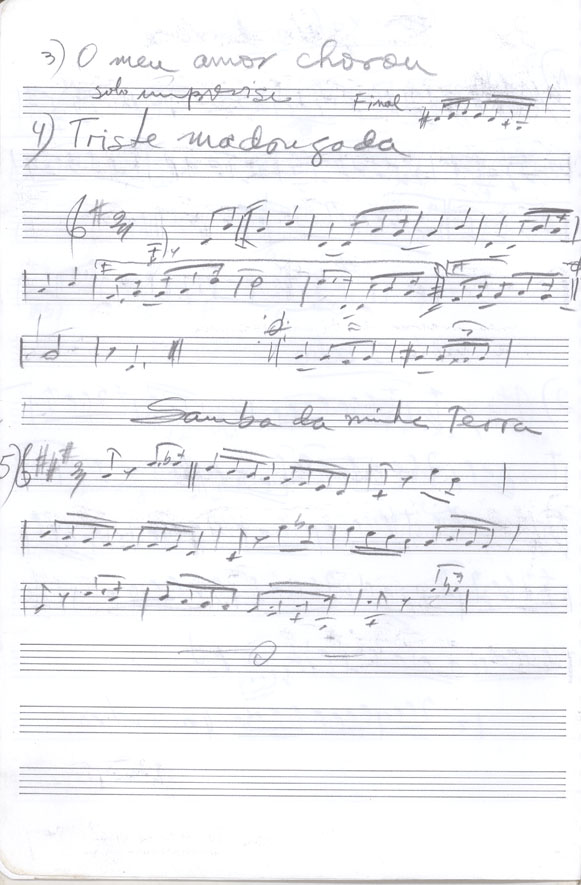 3) O meu amor chorou
solo improviso Final
4) Triste madrugada
Samba da minha Terra
5)